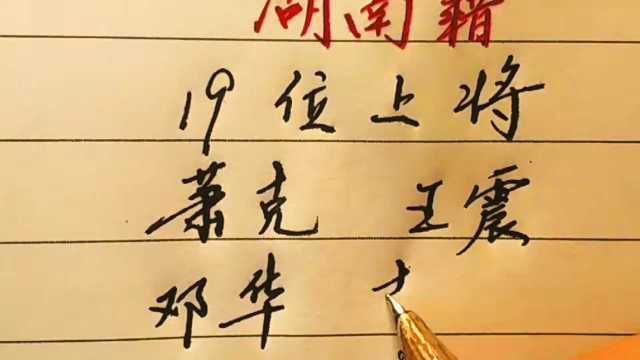 湖南籍
19位上将
萧克 王震
邓华